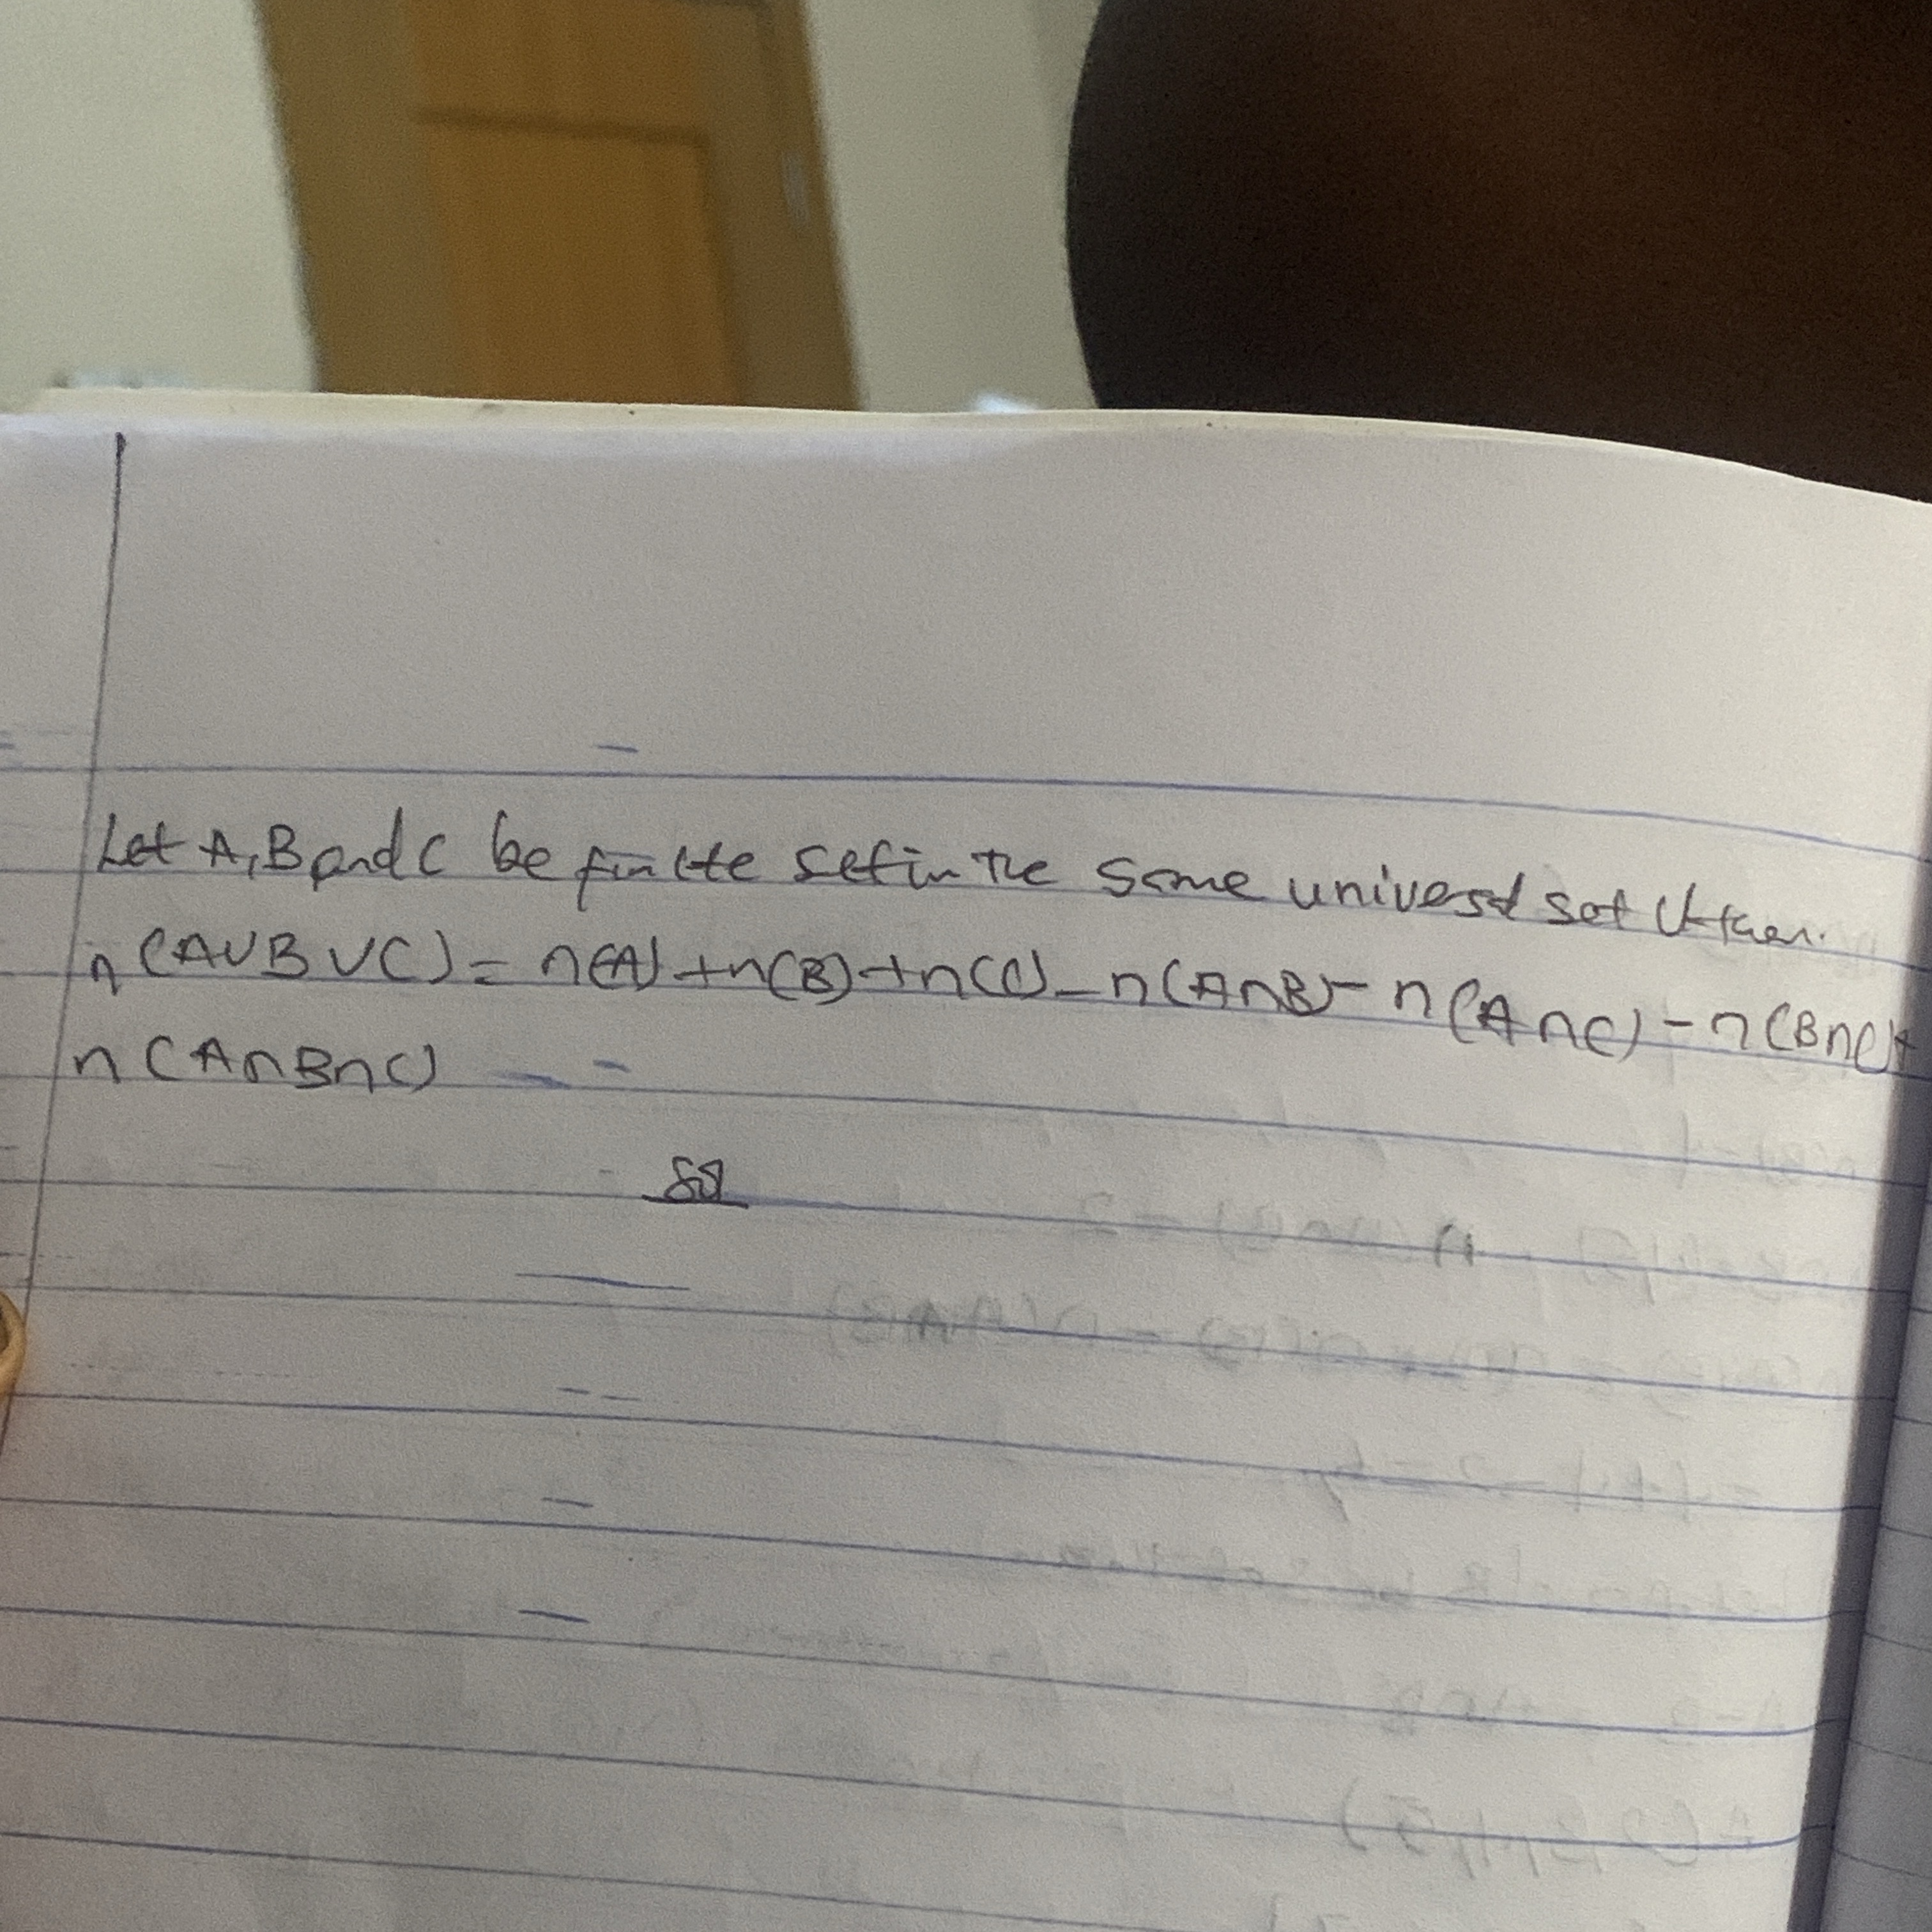 Let A, B and C be finite set in the same universal set U then.
n(A∪B∪C) = n(A) + n(B) + n(C) - n(A∩B) - n(A∩C) - n(B∩C) +
n(A∩B∩C)
Sol